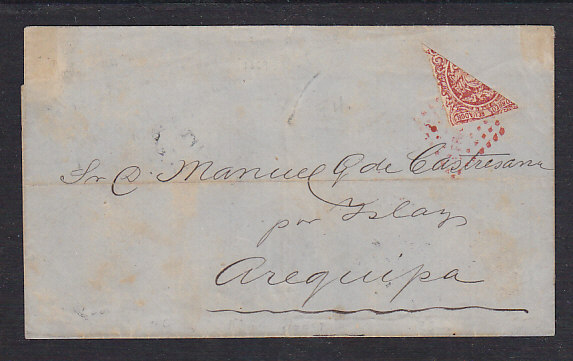 Sr D. Manuel G de Castresana
por Islay
Arequipa